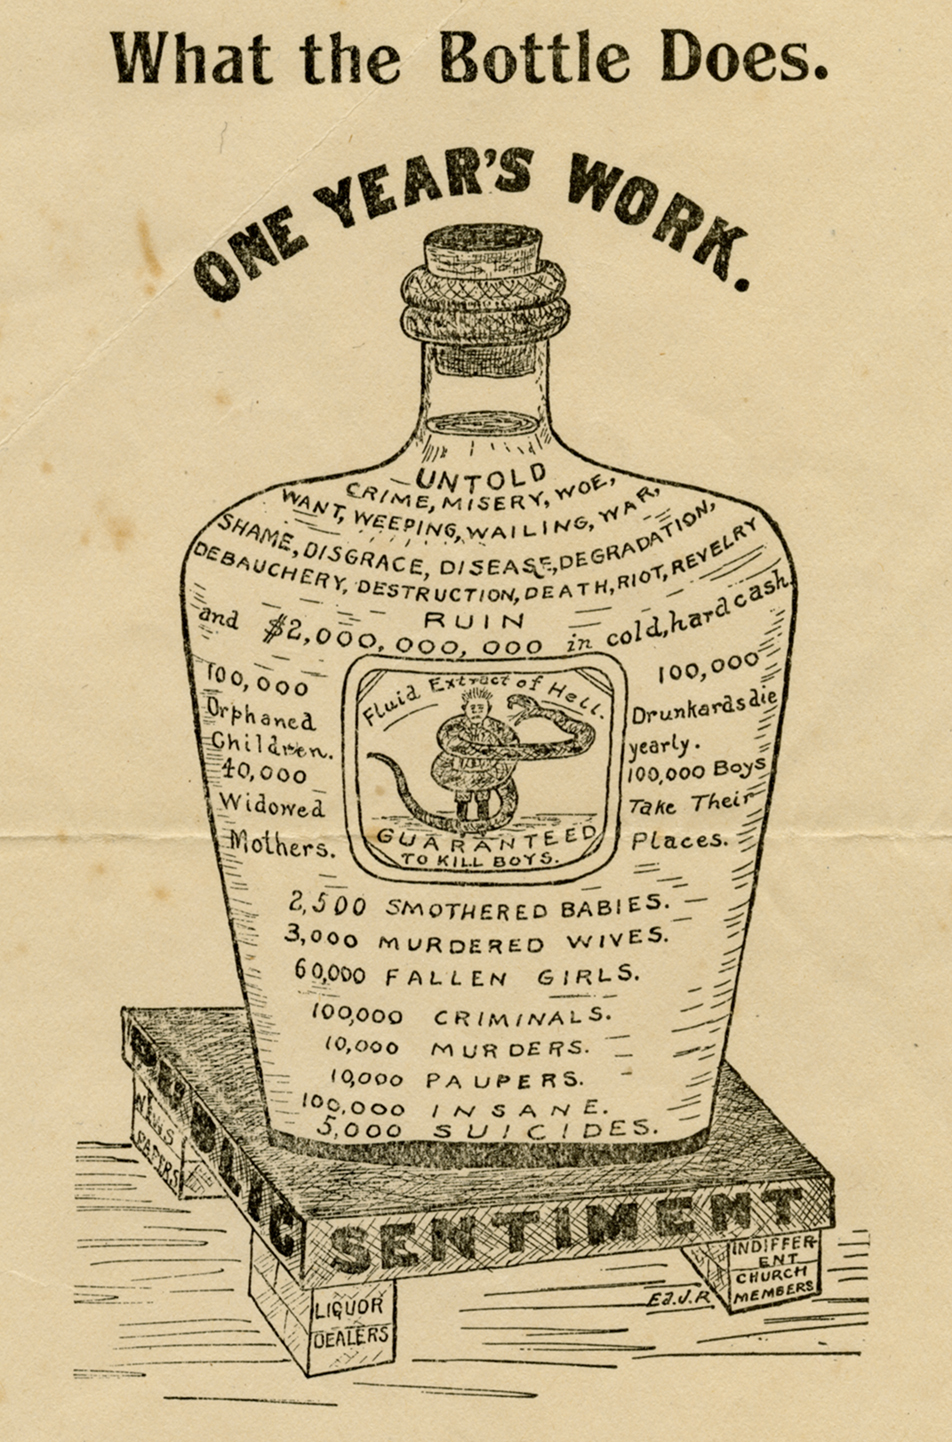 What the Bottle Does.
ONE YEAR'S WORK.
UNTOLD
CRIME, MISERY, WOE,
WANT, WEEPING, WAILING, WAR,
SHAME, DISGRACE, DISEASE, DEGRADATION,
DEBAUCHERY, DESTRUCTION, DEATH, RIOT, REVELRY
RUIN
and $2,000,000,000 in cold, hard cash.
100,000
Orphaned
Children.
40,000
Widowed
Mothers.
Fluid Extract of Hell.
GUARANTEED
TO KILL BOYS.
100,000
Drunkards die
yearly.
100,000 Boys
Take Their
Places.
2,500 SMOTHERED BABIES.
3,000 MURDERED WIVES.
60,000 FALLEN GIRLS.
100,000 CRIMINALS.
10,000 MURDERS.
10,000 PAUPERS.
100,000 INSANE.
5,000 SUICIDES.
PUBLIC
SENTIMENT
NEWS
PAPERS
LIQUOR
DEALERS
INDIFFER-
ENT
CHURCH
MEMBERS
Ed. J. R.